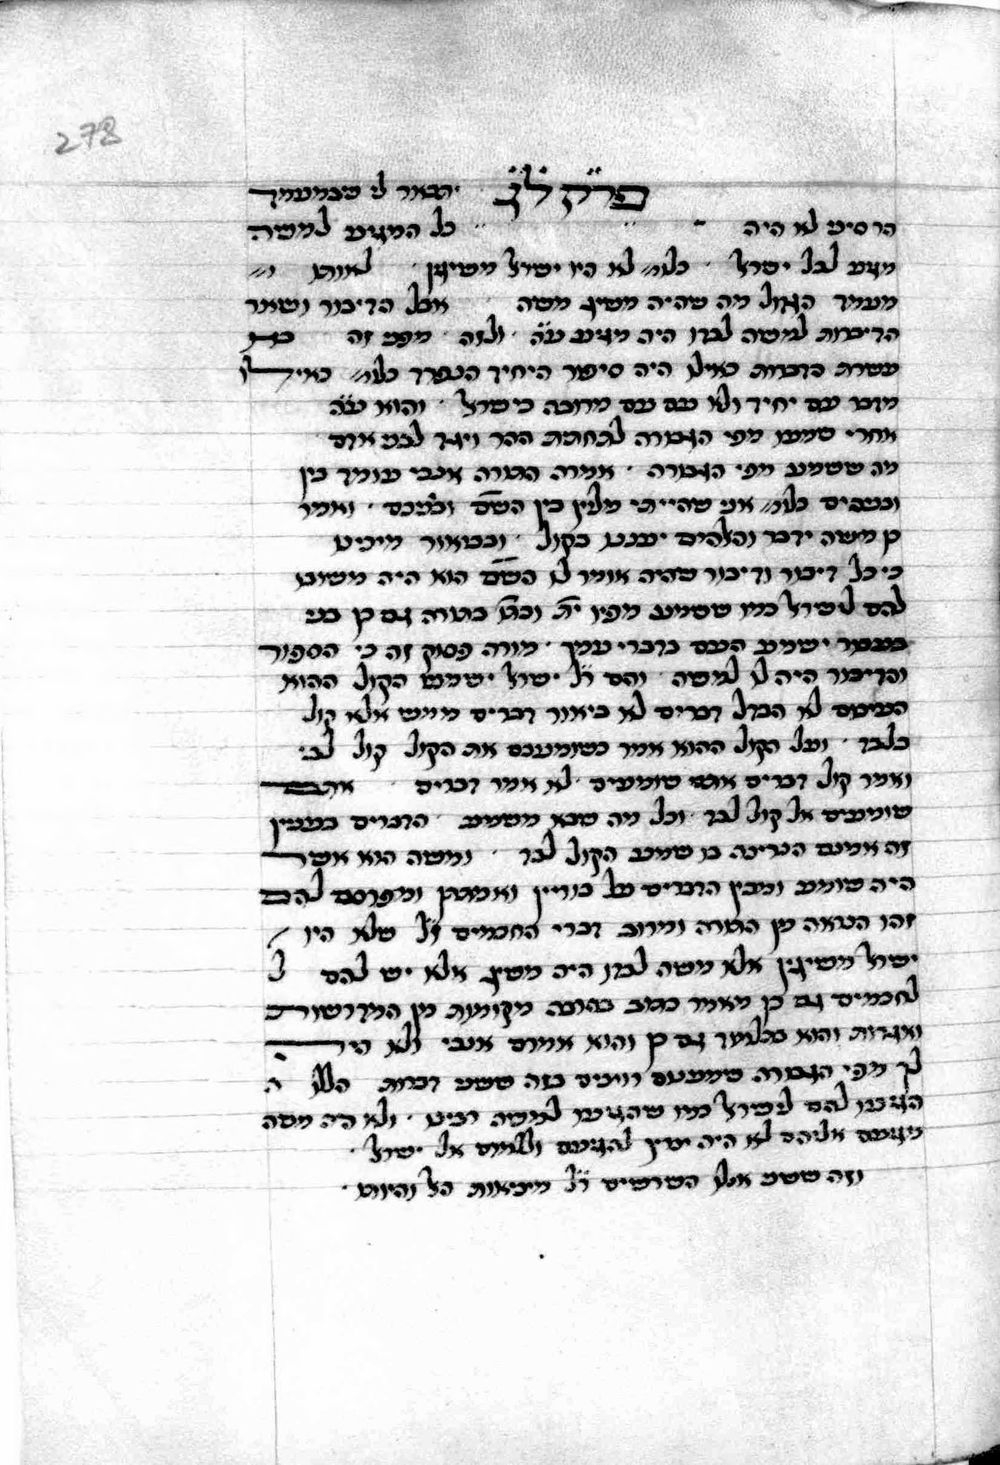 278
פרק לג יתבאר לי שבמעמד
הר סיני לא היה כל המגיע למשה
מגיע לכל ישראל כלו׳ לא היו ישראל משיגין לאותו
מעמד הגדול מה שהיה משיג משה אבל הדיבור ושאר
הדיברות למשה לבדו היה מגיע ע״ה ולזה מפני זה
עשרת הדברות כאילו היה סיפור היחיד הנפרד כלו׳ כאילו
מדבר עם יחיד ולא עם עם מרובה כישראל והוא ע״ה
אחרי שמעו מפי הגבורה לתחתית ההר ויגד לבני אדם
מה ששמע מפי הגבורה אמרה התורה אנכי עומד בין
וביניכם כלו׳ אני שהייתי מליץ בין השם וביניכם ואמר
כן משה ידבר והאלהים יעננו בקול ובביאור מכילתא
כי כל דיבור ודיבור שהיה אומר לו השם הוא היה משיבו
להם לישראל כמו ששמע מפיו ית׳ וכתו׳ בתורה גם כן בע׳
בעבור ישמע העם בדברי עמך מורה פסוק זה כי הספור
והדיבור היה לו למשה והם ר״ל ישראל ישמעו הקול ההוא
העצום לא הבדל דברים לא ביאור דברים ממש אלא קול
בלבד ועל הקול ההוא אמר כשומעכם את הקול קול לב׳
ואמר קול דברים אתם שומעים לא אמר דברים אתם
שומעים אל קול לבד וכל מה שבא משמע הדברים בענין
זה אמנם הנרצה בו שמע הקול לבד ומשה הוא אשר
היה שומע ומבין הדברים על בוריין ואמתתן ומפרסם להם
זהו הנראה מן התורה ומרוב דברי החכמים ז״ל שלא היו
ישראל משיגין אלא משה לבדו היה משיג אלא יש להם ל
לחכמים גם כן מאמר כתוב בהרבה מקומות מן המדרשות
ואגדות והוא בתלמוד גם כן והוא אמרם אנכי ולא יהיה
לך מפי הגבורה שמענום רוצים בזה ששני דברות הללו ה
הגיעו להם לישראל כמו שהגיעו למשה רבינו ולא היה משה
מגיעם אליהם לא היה מליץ להגיעם וללמדם אל ישראל
וזה ששני אלו השרשים ר״ל מציאות האל והיותו